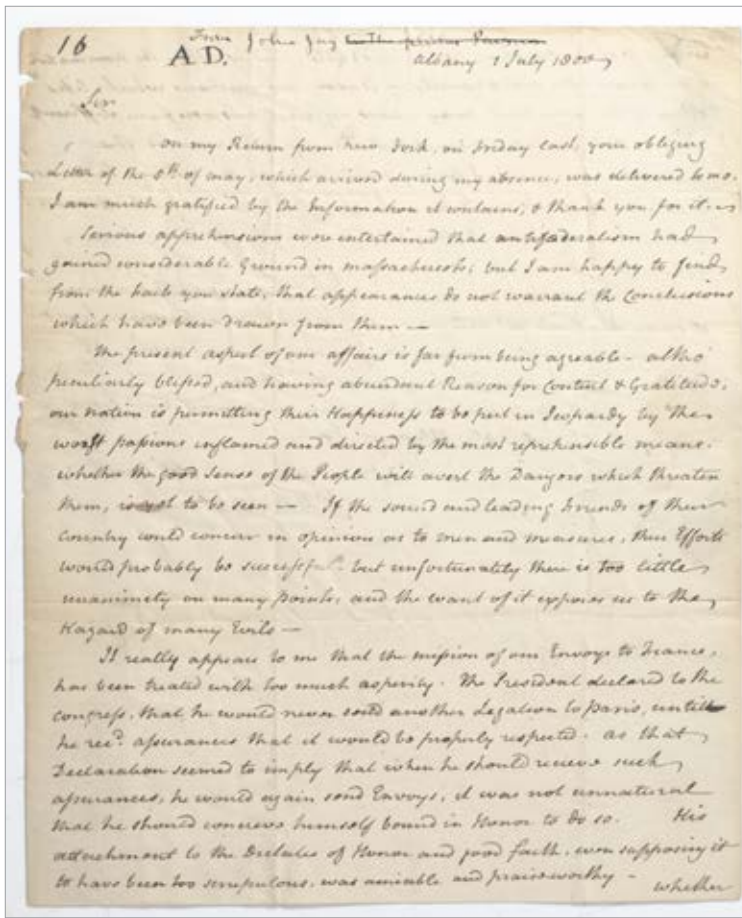 16
From John Jay
A D.
Albany 1 July 1800
Sir
on my Return from new York, on Friday last, your obliging
Letter of the 5th of may, which arrived during my absence, was delivered to me.
I am much gratified by the Information it contains, & thank you for it.
Serious apprehensions were entertained that antifederalism had
gained considerable Ground in massachusets; but I am happy to find
from the facts you state, that appearances do not warrant the Conclusions
which have been drawn from them —
The present aspect of our affairs is far from being agreable - altho
peculiarly blessed, and having abundant Reason for Content & Gratitude,
our nation is permitting their Happiness to be put in Jeopardy by the
worst passions inflamed and directed by the most reprehensible means.
whether the good sense of the People will avert the Dangers which threaten
them, is yet to be seen — If the sound and leading Friends of their
Country could concur in opinion as to men and measures, their Efforts
would probably be successful. but unfortunately there is too little
unanimity on many Points, and the want of it exposes us to the
Hazard of many Evils —
It really appears to me that the mission of our Envoys to France,
has been treated with too much asperity. The President declared to the
congress, that he would never send another Legation to Paris, untill
he recd. assurances that it would be properly respected. as that
Declaration seemed to imply that when he should recieve such
assurances, he would again send Envoys, it was not unnatural
that he should concieve himself bound in Honor to do so. His
attachment to the Dictates of Honor and good faith, even supposing it
to have been too scrupulous, was amiable and praiseworthy -
whether